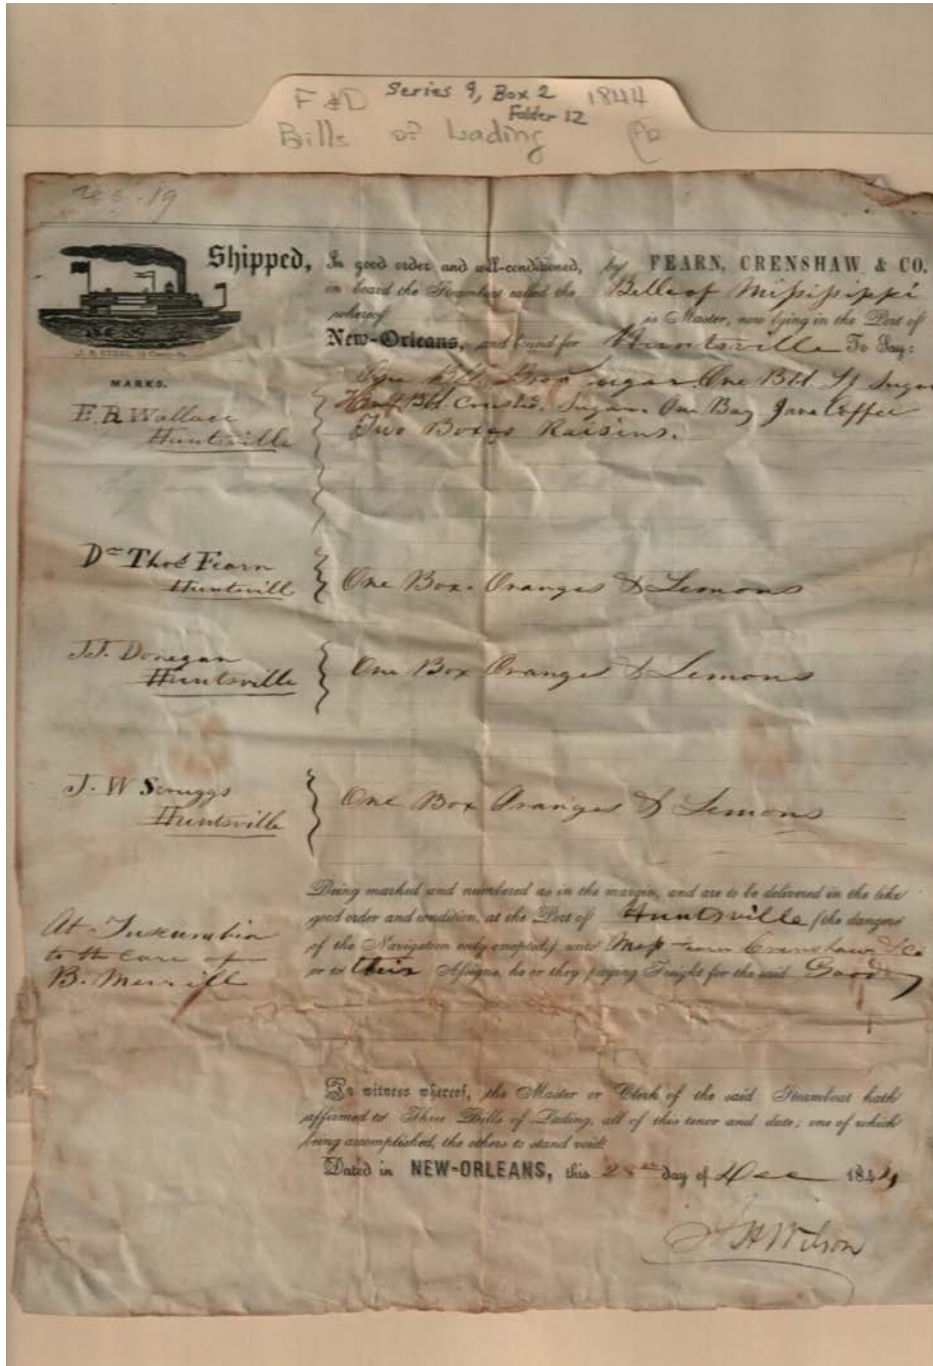 F&D Series 9, Box 2 1844
Folder 12
Bills of Lading
Shipped, In good order and well-conditioned, by FEARN, CRENSHAW & CO.
on board the Steamboat called the Belle of Missisippi
whereof is Master, now lying in the Port of
New-Orleans, and bound for Huntsville To Say:
MARKS.
E.R. Wallace
Huntsville
One Bbl. Sugar. One Bbl Lf Sugar
Half Bbl. Crushd. Sugar. One Bag Java Coffee
Two Boxes Raisins.
Dr Thos Fearn
Huntsvill
One Box. Oranges & Lemons
J.J. Donegan
Huntsville
One Box Oranges & Lemons
J. W Scruggs
Huntsville
One Box Oranges & Lemons
Being marked and numbered as in the margin, and are to be delivered in the like
good order and condition, at the Port of Huntsville (the dangers
of the Navigation only excepted,) unto Mess Crenshaw & Co
or to their Assigns, he or they paying Freight for the said Goods
At Tuscumbia
to the care of
B. Merrill
In witness whereof, the Master or Clerk of the said Steamboat hath
affirmed to Three Bills of Lading, all of this tenor and date; one of which
being accomplished, the others to stand void.
Dated in NEW-ORLEANS, this 28th day of Dec 1844
H Wilson